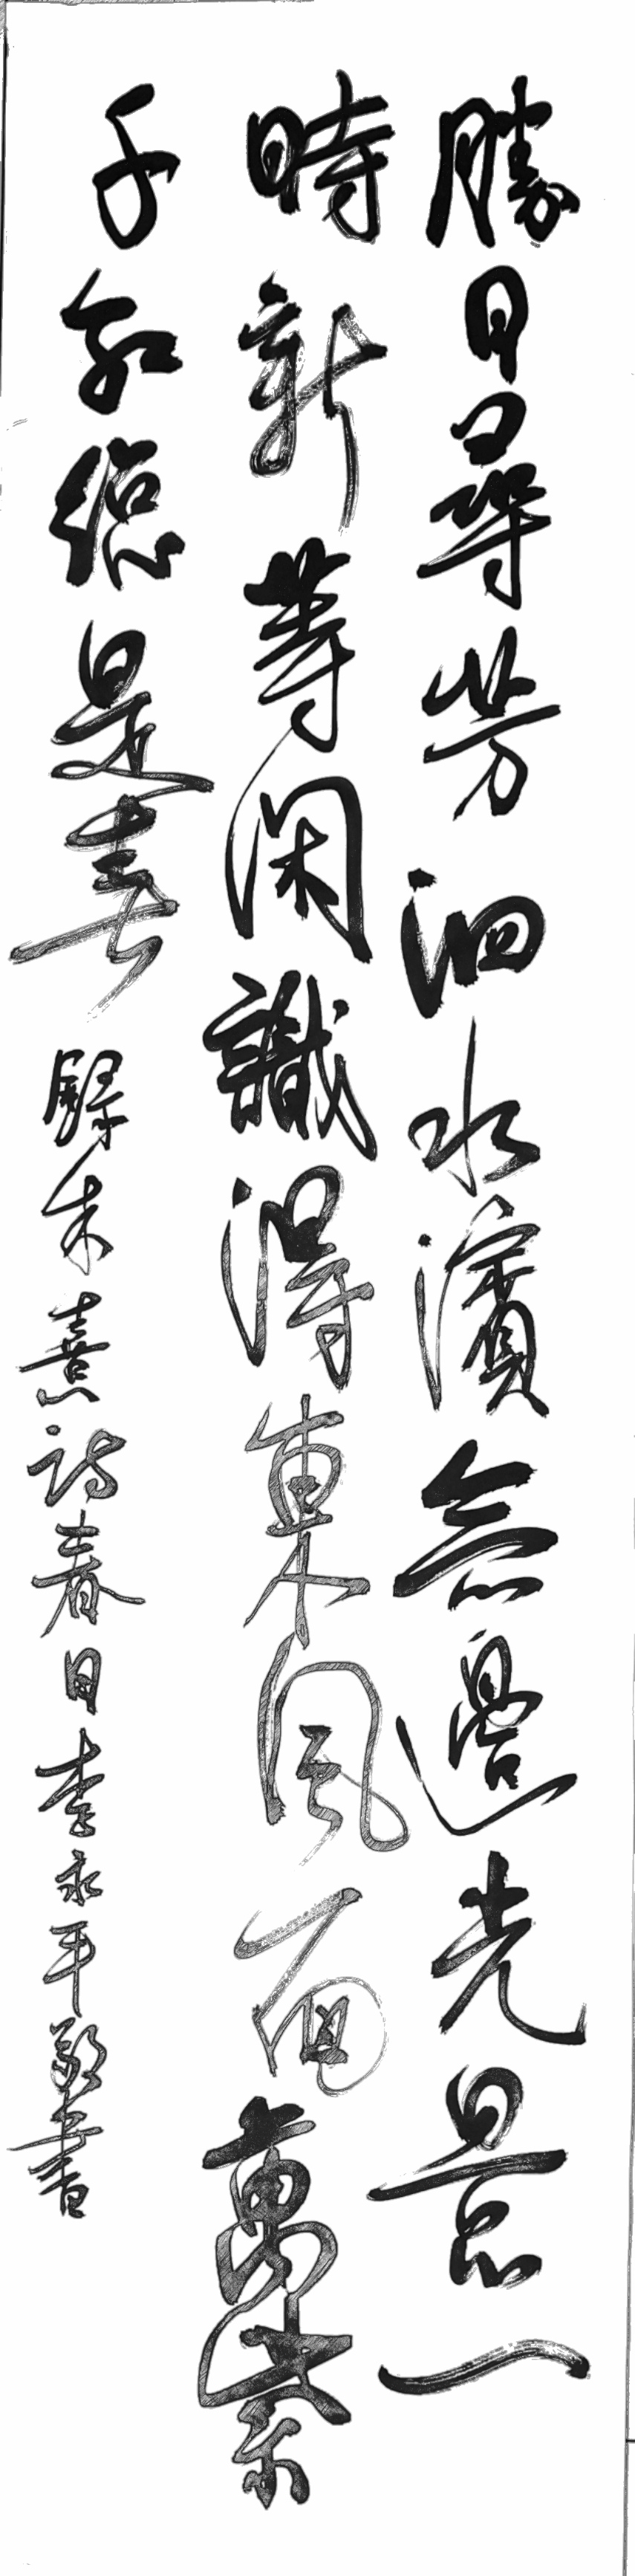 勝日尋芳泗水濱無邊光景一
時新等閑識得東風面萬紫
千紅總是春 錄朱熹詩春日李永平敬書